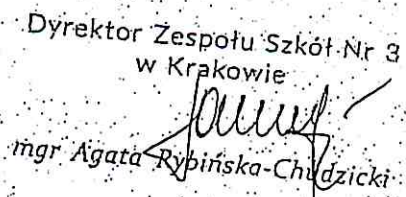 Dyrektor Zespołu Szkół Nr 3
w Krakowie
mgr Agata Rybińska-Chudzicki